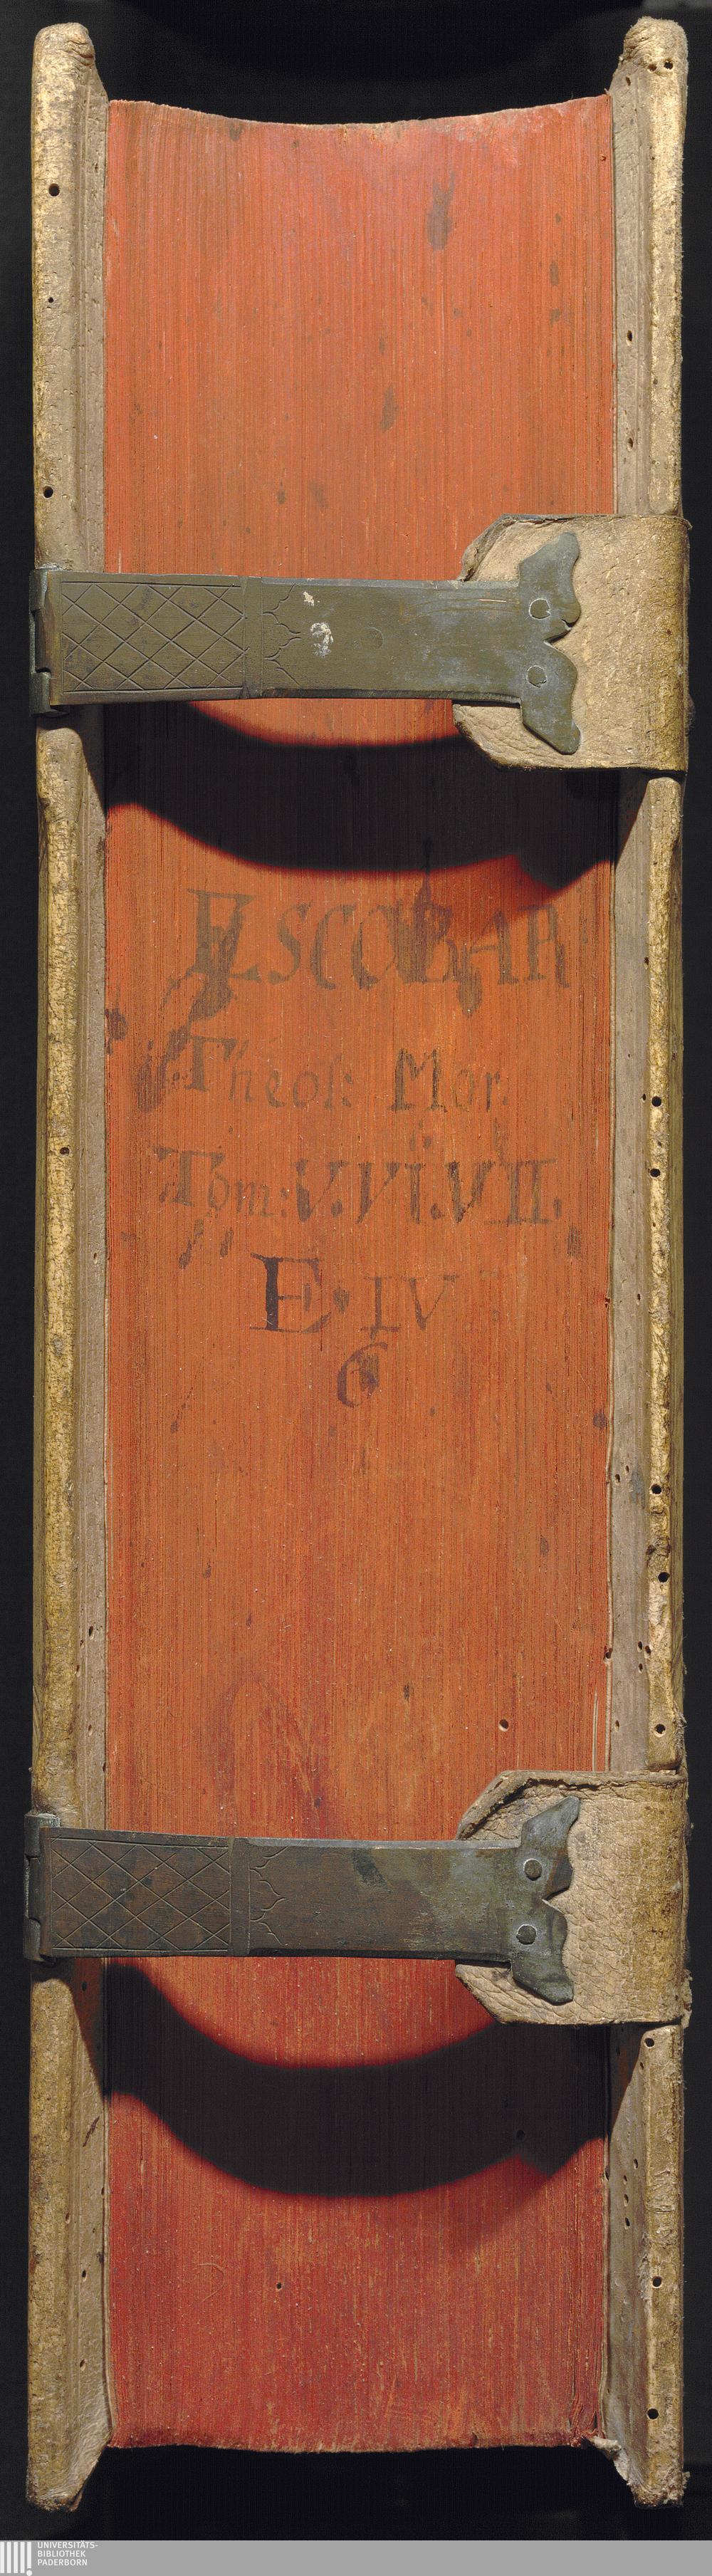 ESCOBAR
Theol: Mor.
Tom: V. VI. VII.
E. IV
6
UNIVERSITÄTS-
BIBLIOTHEK
PADERBORN